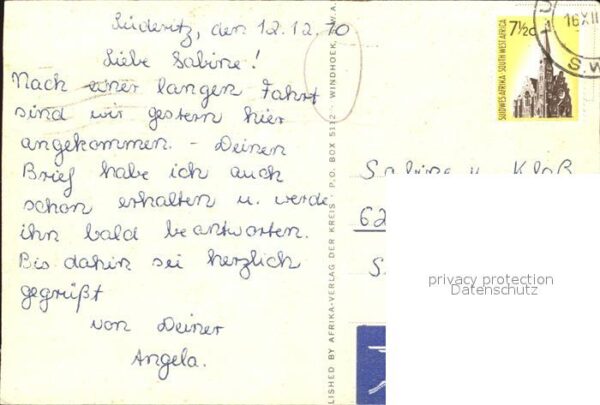 Lüderitz, den 12.12.70
Liebe Sabine!
Nach einer langen Fahrt
sind wir gestern hier
angekommen. - Deinen
Brief habe ich auch
schon erhalten u. werde
ihn bald beantworten.
Bis dahin sei herzlich
gegrüßt
von Deiner
Angela.
LISHED BY AFRIKA-VERLAG DER KREIS · P.O. BOX 5112 · WINDHOEK, S.W.A.
7½c
SÜDWESAFRIKA · SOUTH WEST AFRICA
16 XII
SW
Sabine u. Kloß
62
S
privacy protection
Datenschutz